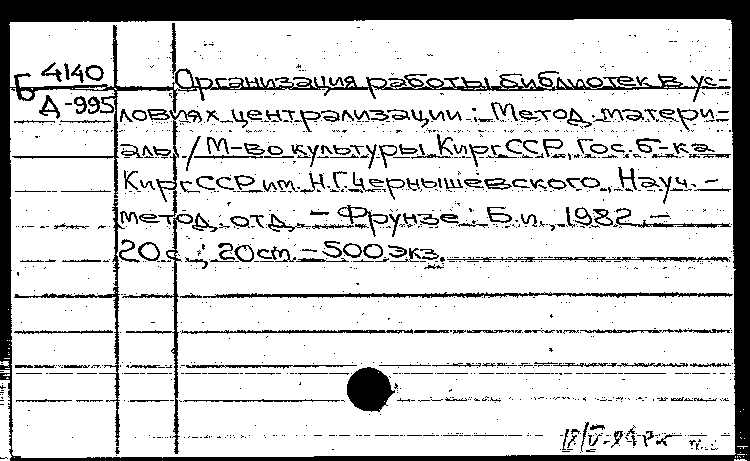 Б 4140
Д-995
Организация работы библиотек в ус-
ловиях централизации : Метод. матери-
алы / М-во культуры КиргССР, Гос. б-ка
КиргССР им. Н.Г.Чернышевского, Науч.-
метод. отд. – Фрунзе : Б.и., 1982. –
20 с. ; 20 ст. – 500 экз.